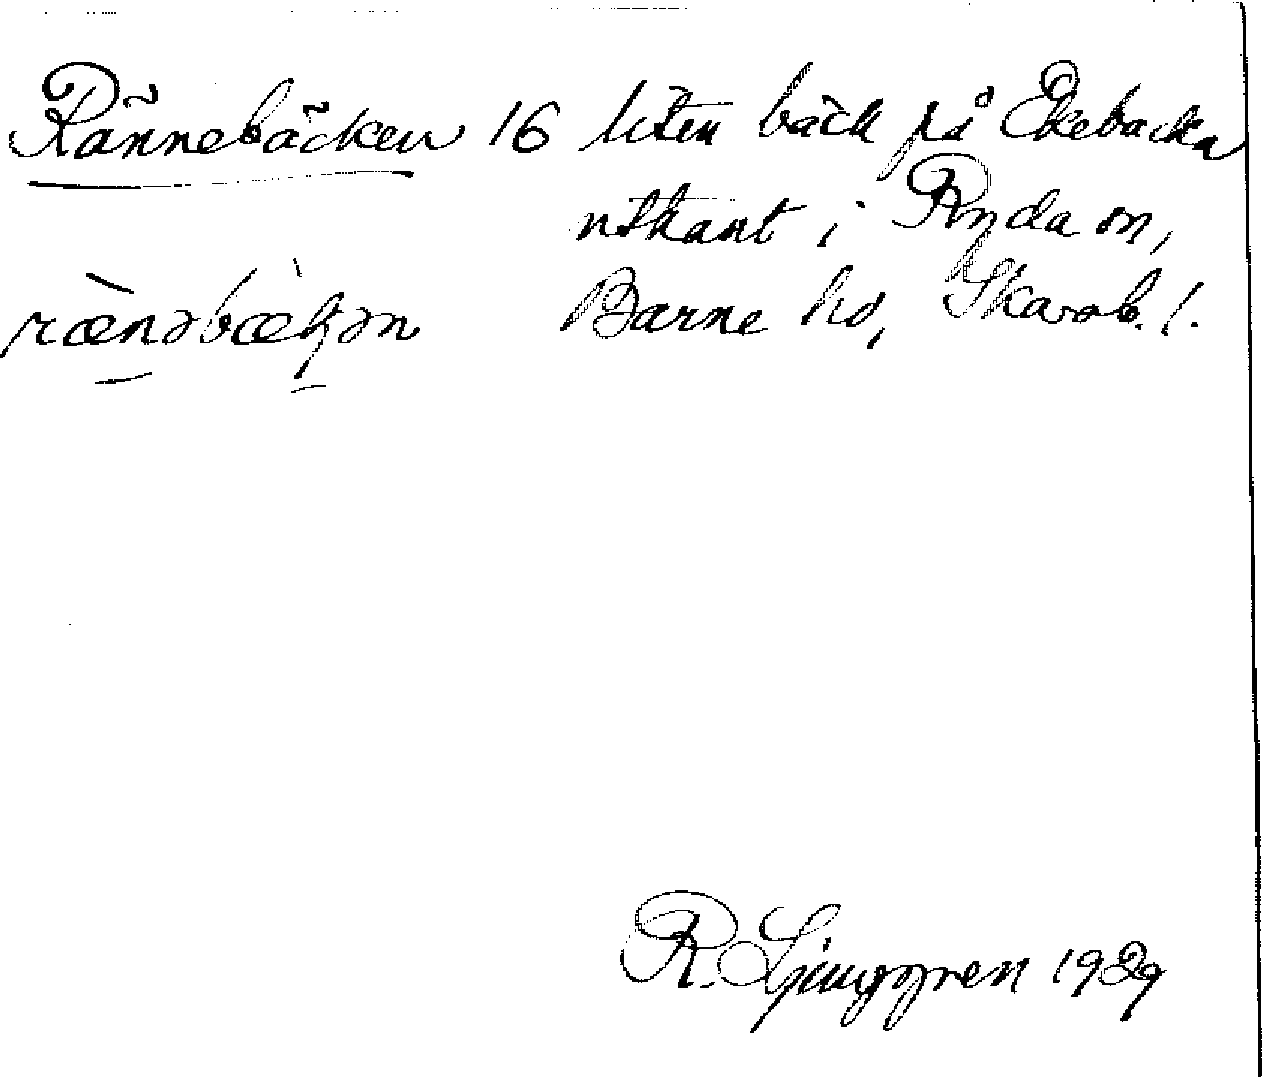 Rännebäcken 16 liten bäck på Ekebacka
utkant i Ryda sn,
rænəbækən Barne hd, Skarab. l.
R. Ljunggren 1929